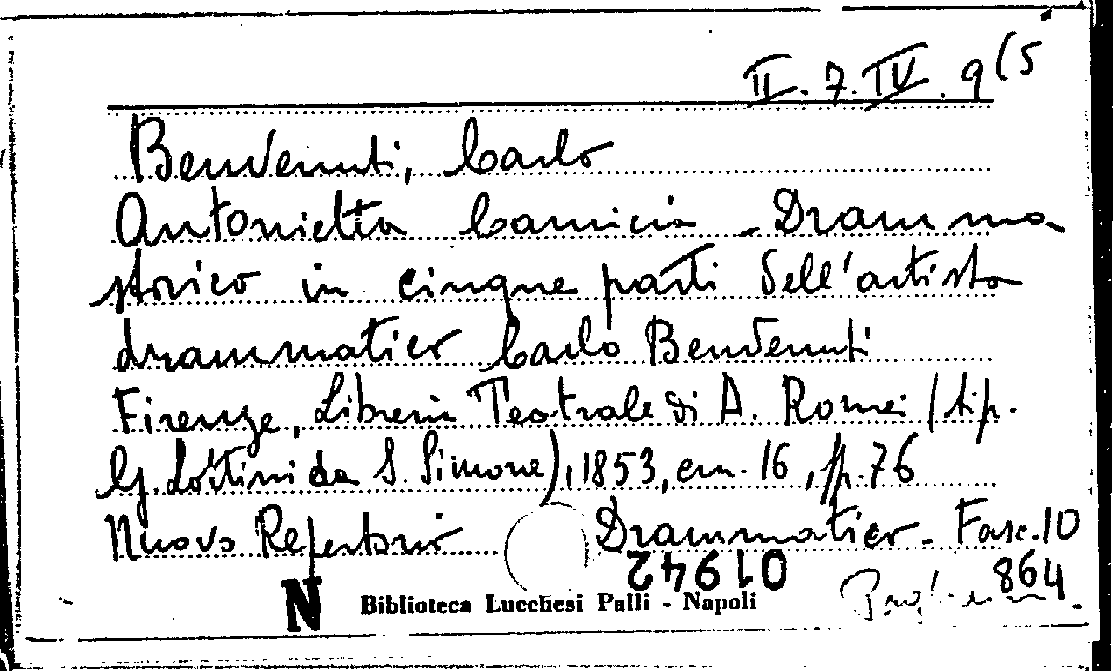 II. 7. IV. 9 (5
Benvenuti, Carlo
Antonietta Camicia - Dramma
storico in cinque parti dell'artista
drammatico Carlo Benvenuti
Firenze, Libreria Teatrale di A. Romei (tip.
G. Lottini da S. Simone), 1853, cm. 16, pp. 76
Nuovo Repertorio Drammatico - Fasc. 10
01942
864
N Biblioteca Lucchesi Palli - Napoli